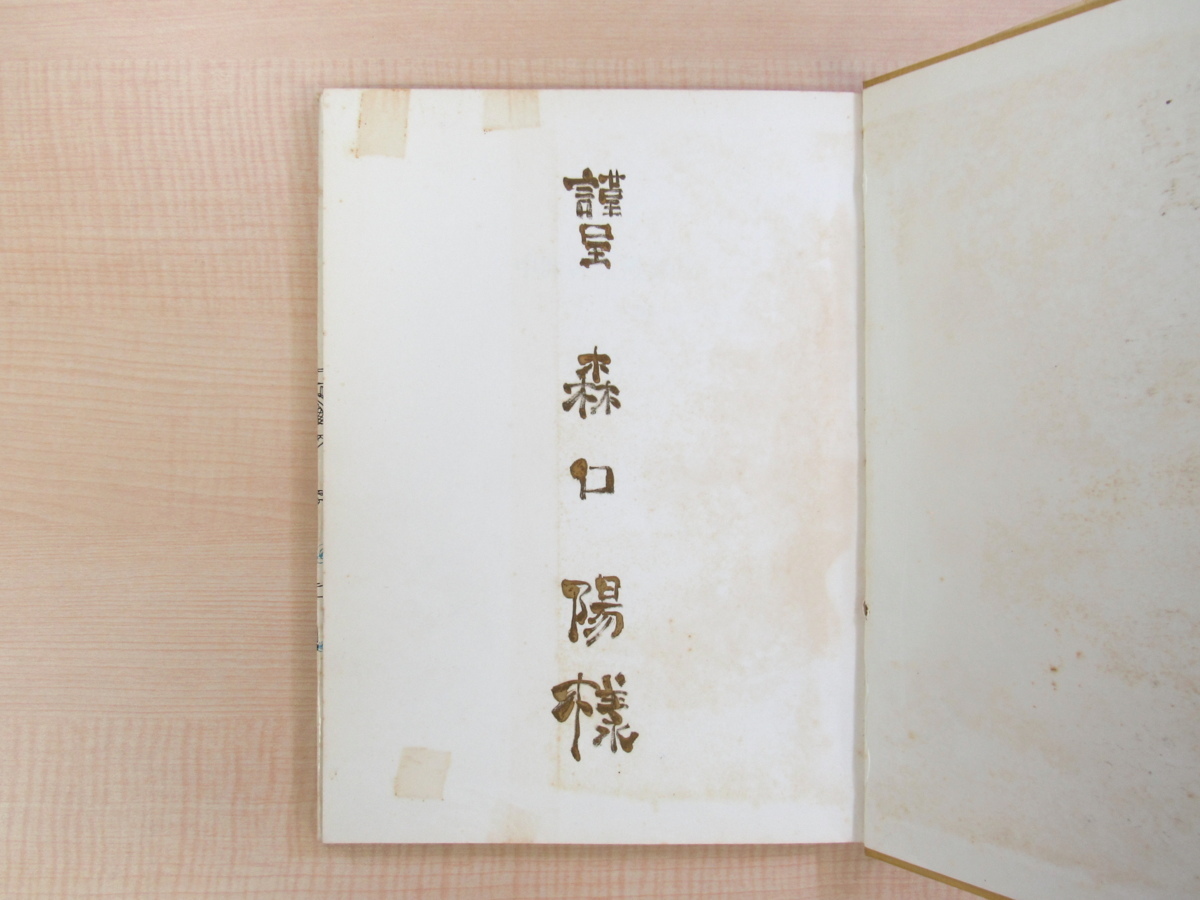 謹呈 森口 陽様